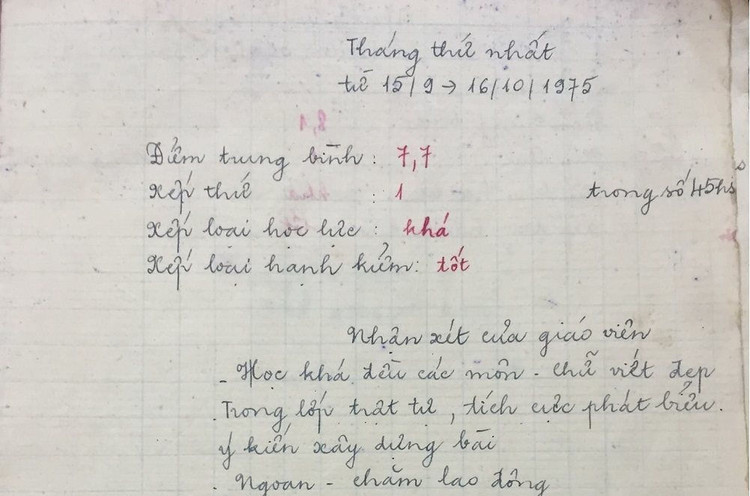 Tháng thứ nhất
từ 15/9 → 16/10/1975
8,1
Điểm trung bình : 7,7
Xếp thứ : 1 trong số 45hs
Xếp loại học lực : khá
Xếp loại hạnh kiểm : tốt
Nhận xét của giáo viên
- Học khá đều các môn - chữ viết đẹp
. Trong lớp trật tự, tích cực phát biểu.
ý kiến xây dựng bài
. Ngoan - chăm lao động